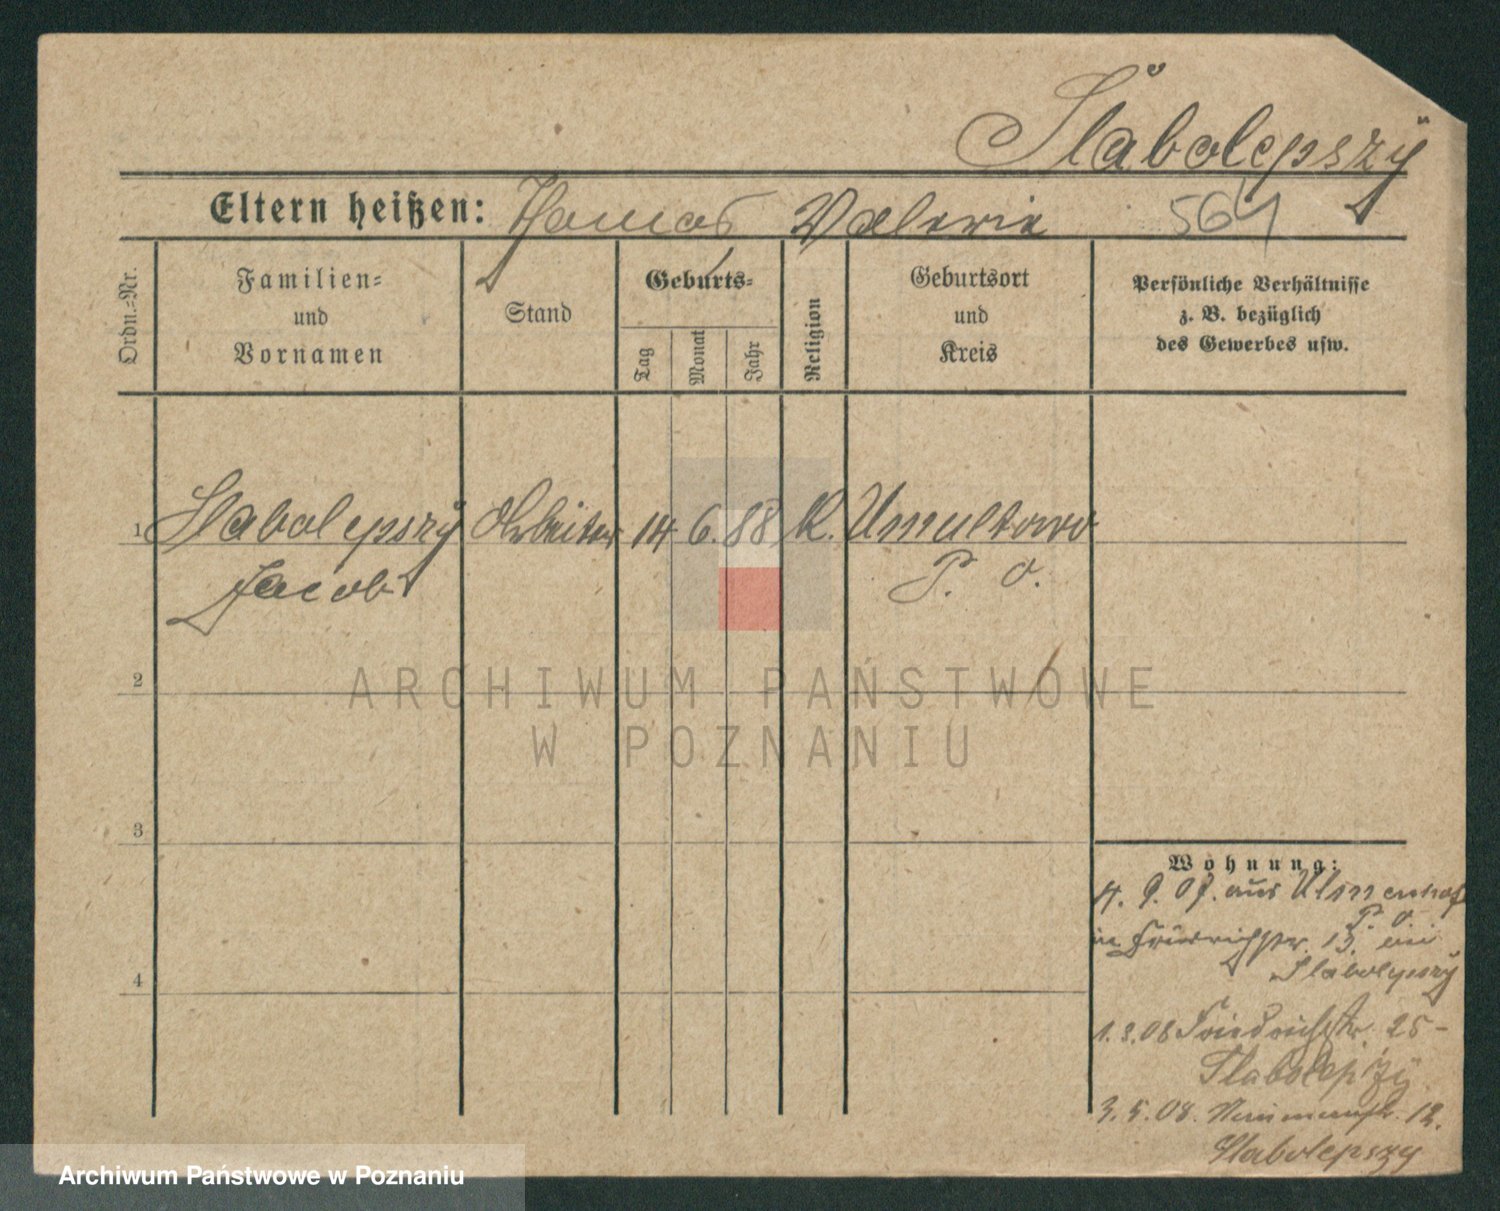 Slabolepszÿ
Eltern heißen: Thomas Valerie 564
Ordn.-Nr.
Familien-
und
Vornamen
Stand
Geburts-
Tag
Monat
Jahr
Religion
Geburtsort
und
Kreis
Persönliche Verhältnisse
z. B. bezüglich
des Gewerbes usw.
1 Slabolepszÿ Arbeiter 14 6. 88 K. Umultowo
Jacob P. O.
2
3
4
Wohnung:
4. 9. 07. aus Ulmenhof
P. O.
in Friedrichstr. 13. bei
Slabolepszÿ
1. 3. 08 Friedrichstr. 25-
Slabolepszÿ
3. 5. 08. 12.
Slabolepszy
ARCHIWUM PAŃSTWOWE
W POZNANIU
Archiwum Państwowe w Poznaniu